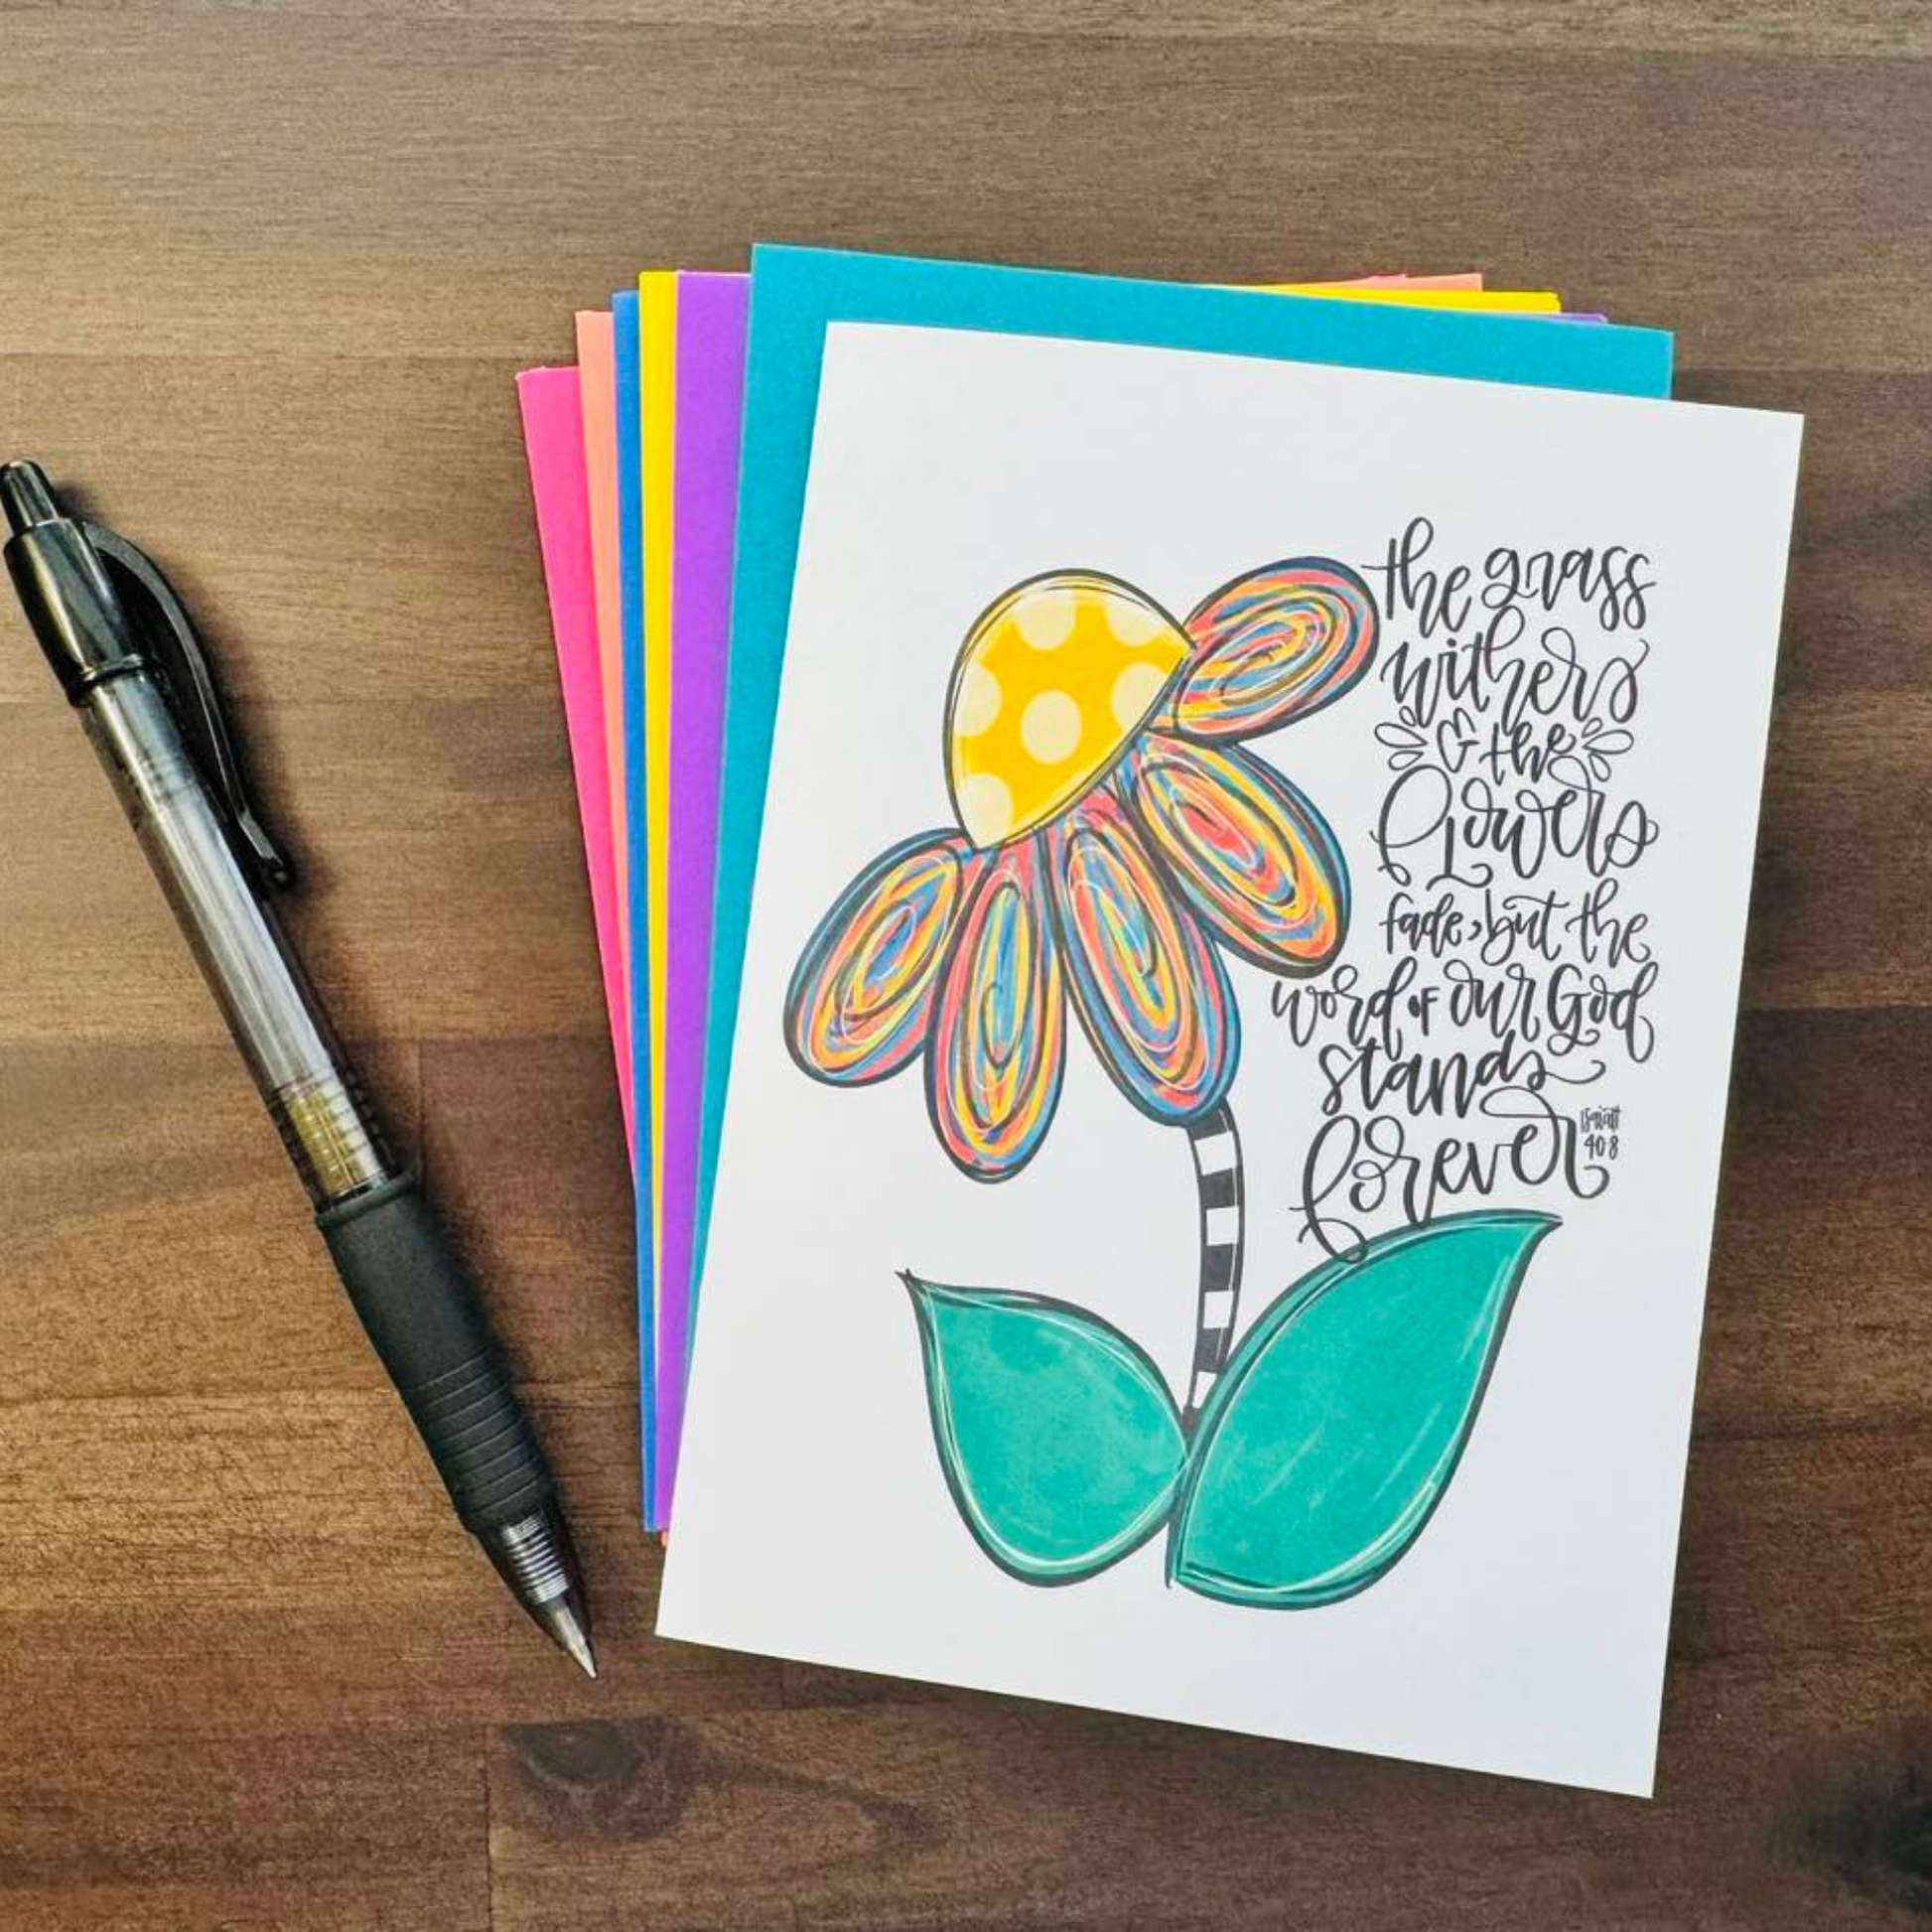 the grass
withers
& the
flowers
fade, but the
word of our God
stands
forever
Isaiah
40:8